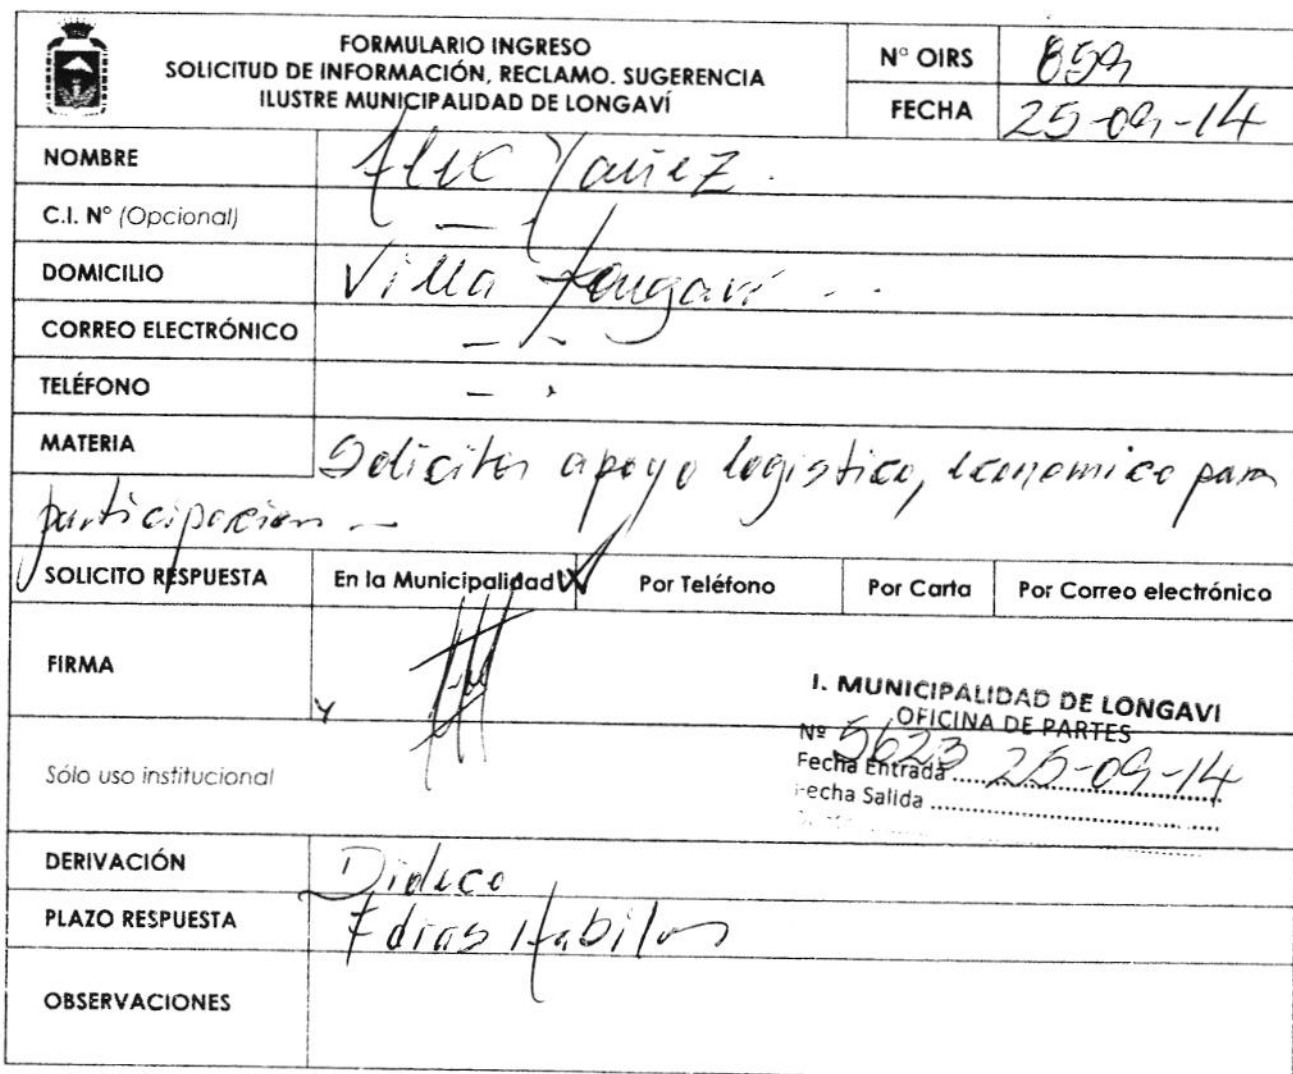 FORMULARIO INGRESO
SOLICITUD DE INFORMACIÓN, RECLAMO. SUGERENCIA
ILUSTRE MUNICIPALIDAD DE LONGAVÍ
N° OIRS 859
FECHA 25-09-14
NOMBRE Yañez.
C.I. N° (Opcional) —
DOMICILIO Villa Longaví
CORREO ELECTRÓNICO —
TELÉFONO —
MATERIA Solicita apoyo logistico, economico para
participacion —
SOLICITO RESPUESTA En la Municipalidad X Por Teléfono Por Carta Por Correo electrónico
FIRMA
I. MUNICIPALIDAD DE LONGAVI
OFICINA DE PARTES
Nº 5623 25-09-14
Fecha Entrada
Fecha Salida
Sólo uso institucional
DERIVACIÓN Dideco
PLAZO RESPUESTA 7 dias Habiles
OBSERVACIONES